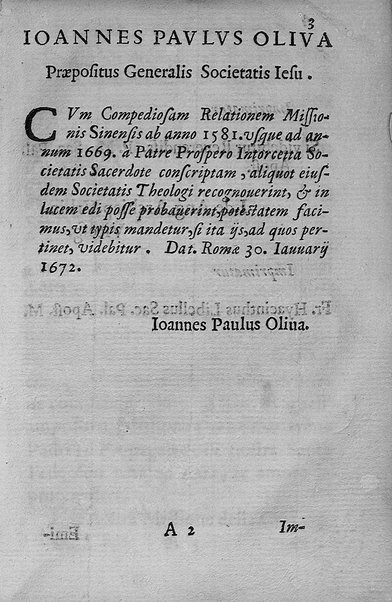 3
IOANNES PAVLVS OLIVA
Præpositus Generalis Societatis Iesu.
CVm Compediosam Relationem Missio-
nis Sinensis ab anno 1581. vsque ad an-
num 1669. à Patre Prospero Intorcetta So-
cietatis Sacerdote conscriptam, aliquot eius-
dem Societatis Theologi recognouerint, & in
lucem edi posse probauerint, potestatem faci-
mus, vt typis mandetur, si ita ijs, ad quos per-
tinet, videbitur. Dat. Romæ 30. Ianuarij
1672.
Ioannes Paulus Oliua.
A 2
Im-